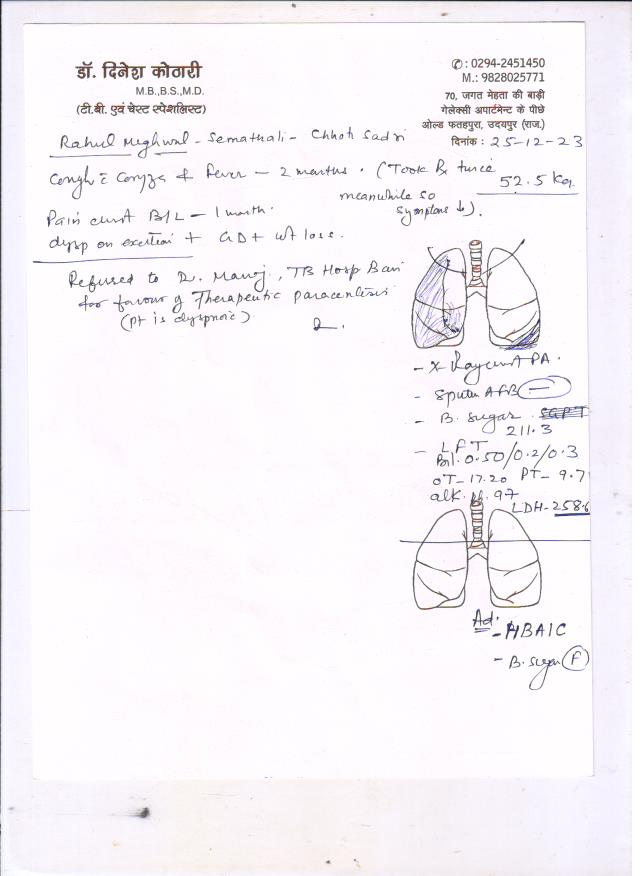 डॉ. दिनेश कोठारी
M.B.,B.S.,M.D.
(टी.बी. एवं चेस्ट स्पेशलिस्ट)
✆: 0294-2451450
M.: 9828025771
70, जगत मेहता की बाड़ी
गेलेक्सी अपार्टमेन्ट के पीछे
ओल्ड फतहपुरा, उदयपुर (राज.)
दिनांक : 25-12-23
Rahul Meghwal - Semathali - Chhoti Sadri
52.5 Kg
Cough c̄ Coryza & Fever - 2 months. (Took Rx twice
meanwhile so
symptoms ↓).
Pain chest B/L - 1 month.
dysp on exertion + GD + wt loss.
Refused to D. Manoj, TB Hosp Bari
for favour of Therapeutic Paracentesis
(Pt is dyspnoic)
- X Ray chest PA.
- Sputum AFB (-)
- B. Sugar SGPT
211.3
- LFT
Bil. 0.50/0.2/0.3
OT - 17.20 PT - 9.7
alk. 97
LDH - 258.6
Ad:
- HBA1C
- B. Sugar (F)